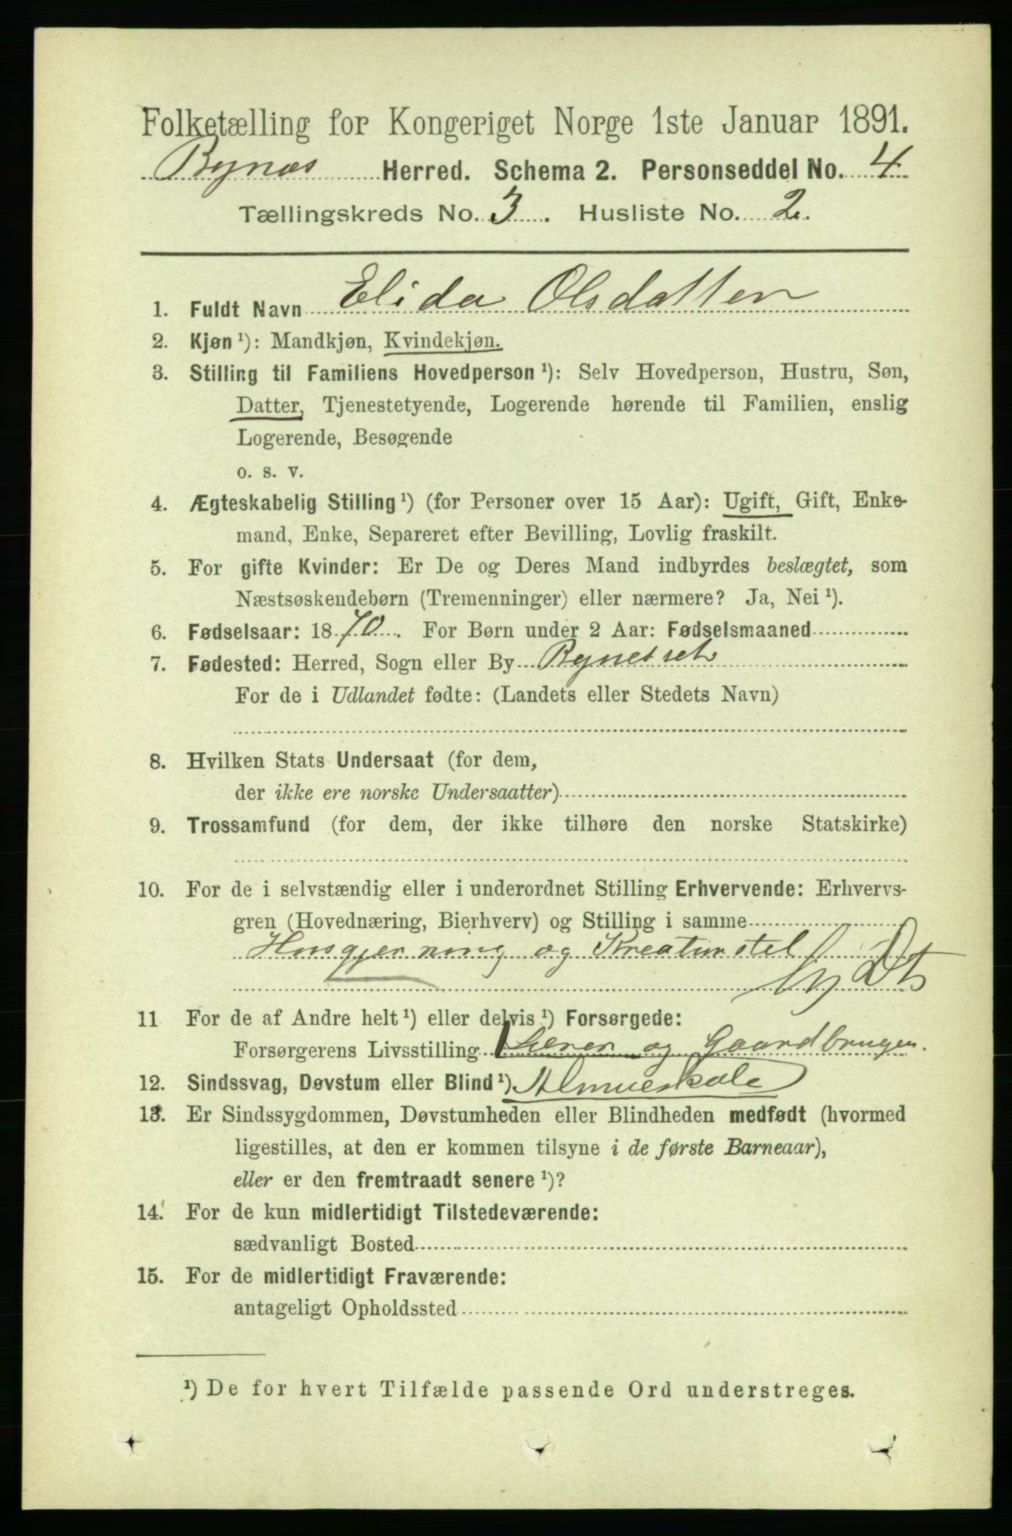 Folketælling for Kongeriget Norge 1ste Januar 1891.
Bynæs Herred. Schema 2. Personseddel No. 4
Tællingskreds No. 3. Husliste No. 2.
1. Fuldt Navn Elida Olsdatter
2. Kjøn ¹): Mandkjøn, Kvindekjøn.
3. Stilling til Familiens Hovedperson ¹): Selv Hovedperson, Hustru, Søn,
Datter, Tjenestetyende, Logerende hørende til Familien, enslig
Logerende, Besøgende
o. s. v.
4. Ægteskabelig Stilling ¹) (for Personer over 15 Aar): Ugift, Gift, Enke-
mand, Enke, Separeret efter Bevilling, Lovlig fraskilt.
5. For gifte Kvinder: Er De og Deres Mand indbyrdes beslægtet, som
Næstsøskendebørn (Tremenninger) eller nærmere? Ja, Nei ¹).
6. Fødselsaar: 1870. For Børn under 2 Aar: Fødselsmaaned
7. Fødested: Herred, Sogn eller By Bynesset
For de i Udlandet fødte: (Landets eller Stedets Navn)
8. Hvilken Stats Undersaat (for dem,
der ikke ere norske Undersaatter)
9. Trossamfund (for dem, der ikke tilhøre den norske Statskirke)
10. For de i selvstændig eller i underordnet Stilling Erhvervende: Erhvervs-
gren (Hovednæring, Bierhverv) og Stilling i samme
Husgjerning og Kreaturstel
11 For de af Andre helt ¹) eller delvis ¹) Forsørgede:
Forsørgerens Livsstilling Lærer og Gaardbruger.
12. Sindssvag, Døvstum eller Blind ¹) Almueskole
13. Er Sindssygdommen, Døvstumheden eller Blindheden medfødt (hvormed
ligestilles, at den er kommen tilsyne i de første Barneaar),
eller er den fremtraadt senere ¹)?
14. For de kun midlertidigt Tilstedeværende:
sædvanligt Bosted
15. For de midlertidigt Fraværende:
antageligt Opholdssted
¹) De for hvert Tilfælde passende Ord understreges.